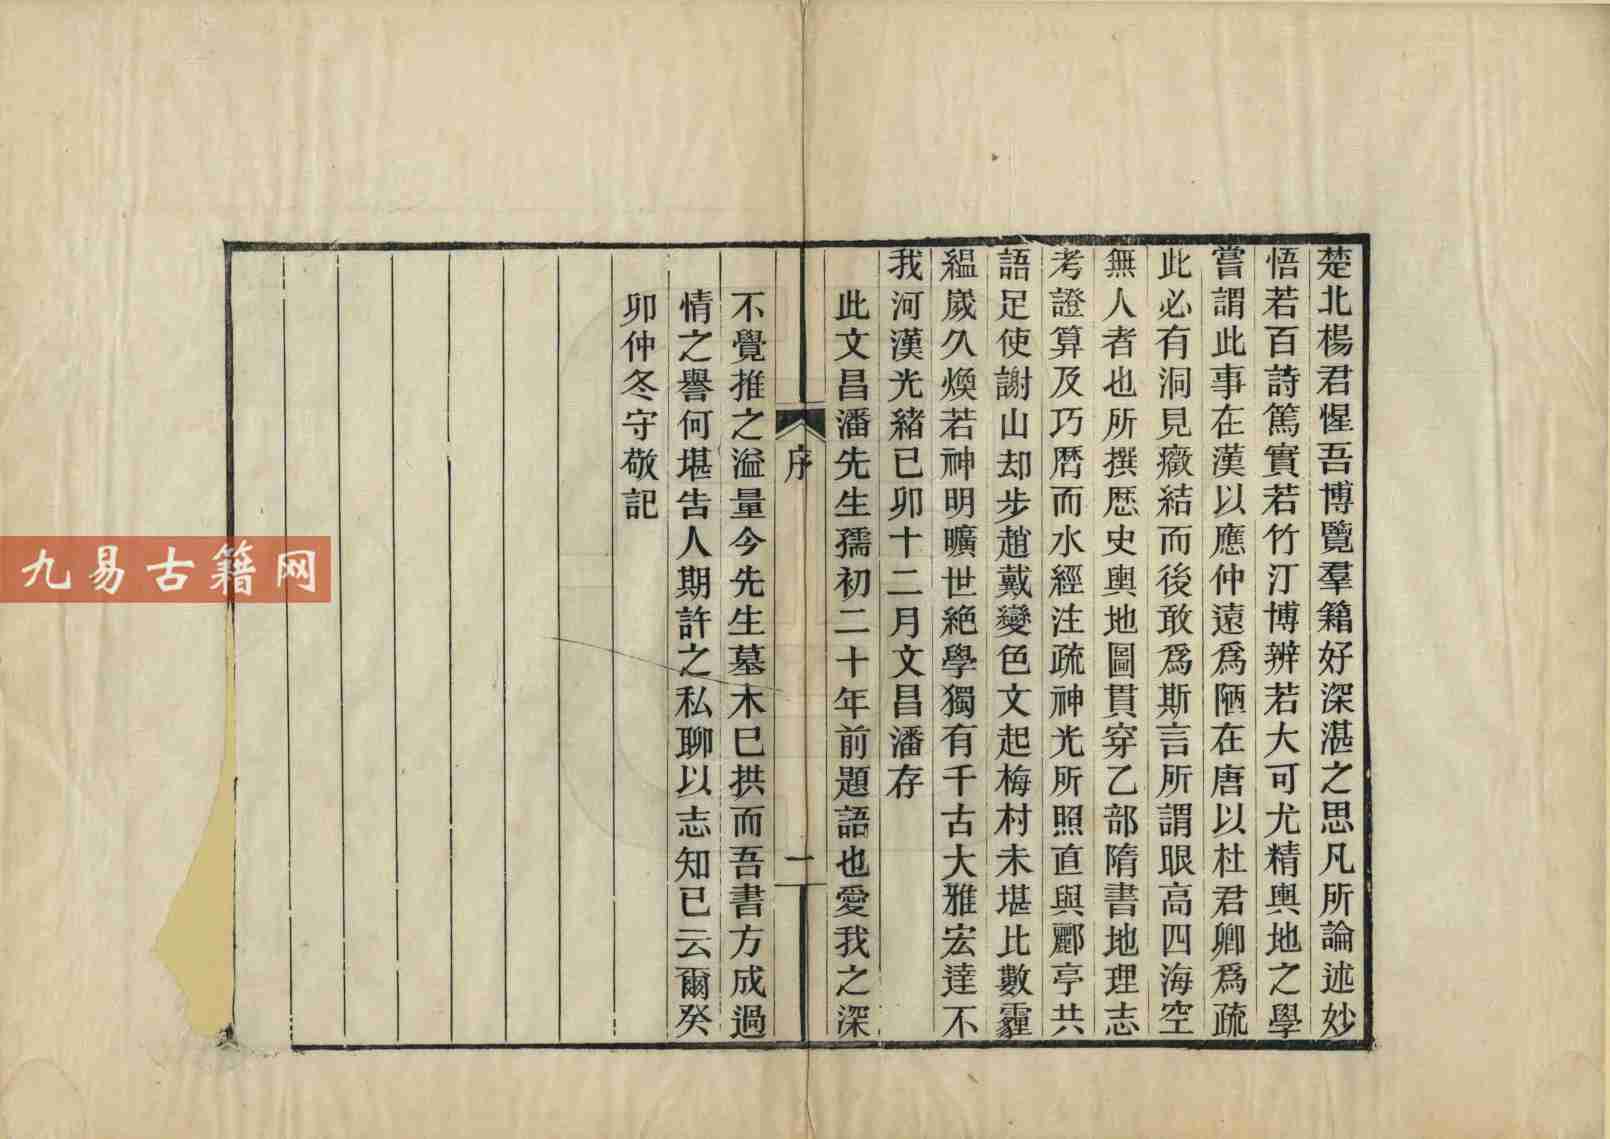 楚北楊君惺吾博覽羣籍好深湛之思凡所論述妙
悟若百詩篤實若竹汀博辨若大可尤精輿地之學
嘗謂此事在漢以應仲遠爲陋在唐以杜君卿爲疏
此必有洞見癥結而後敢爲斯言所謂眼高四海空
無人者也所撰歷史輿地圖貫穿乙部隋書地理志
考證算及巧曆而水經注疏神光所照直與酈亭共
語足使謝山却步趙戴變色文起梅村未堪比數霾
縕歲久煥若神明曠世絕學獨有千古大雅宏達不
我河漢光緒己卯十二月文昌潘存
此文昌潘先生孺初二十年前題語也愛我之深
序
一
不覺推之溢量今先生墓木已拱而吾書方成過
情之譽何堪告人期許之私聊以志知己云爾癸
卯仲冬守敬記
九易古籍网